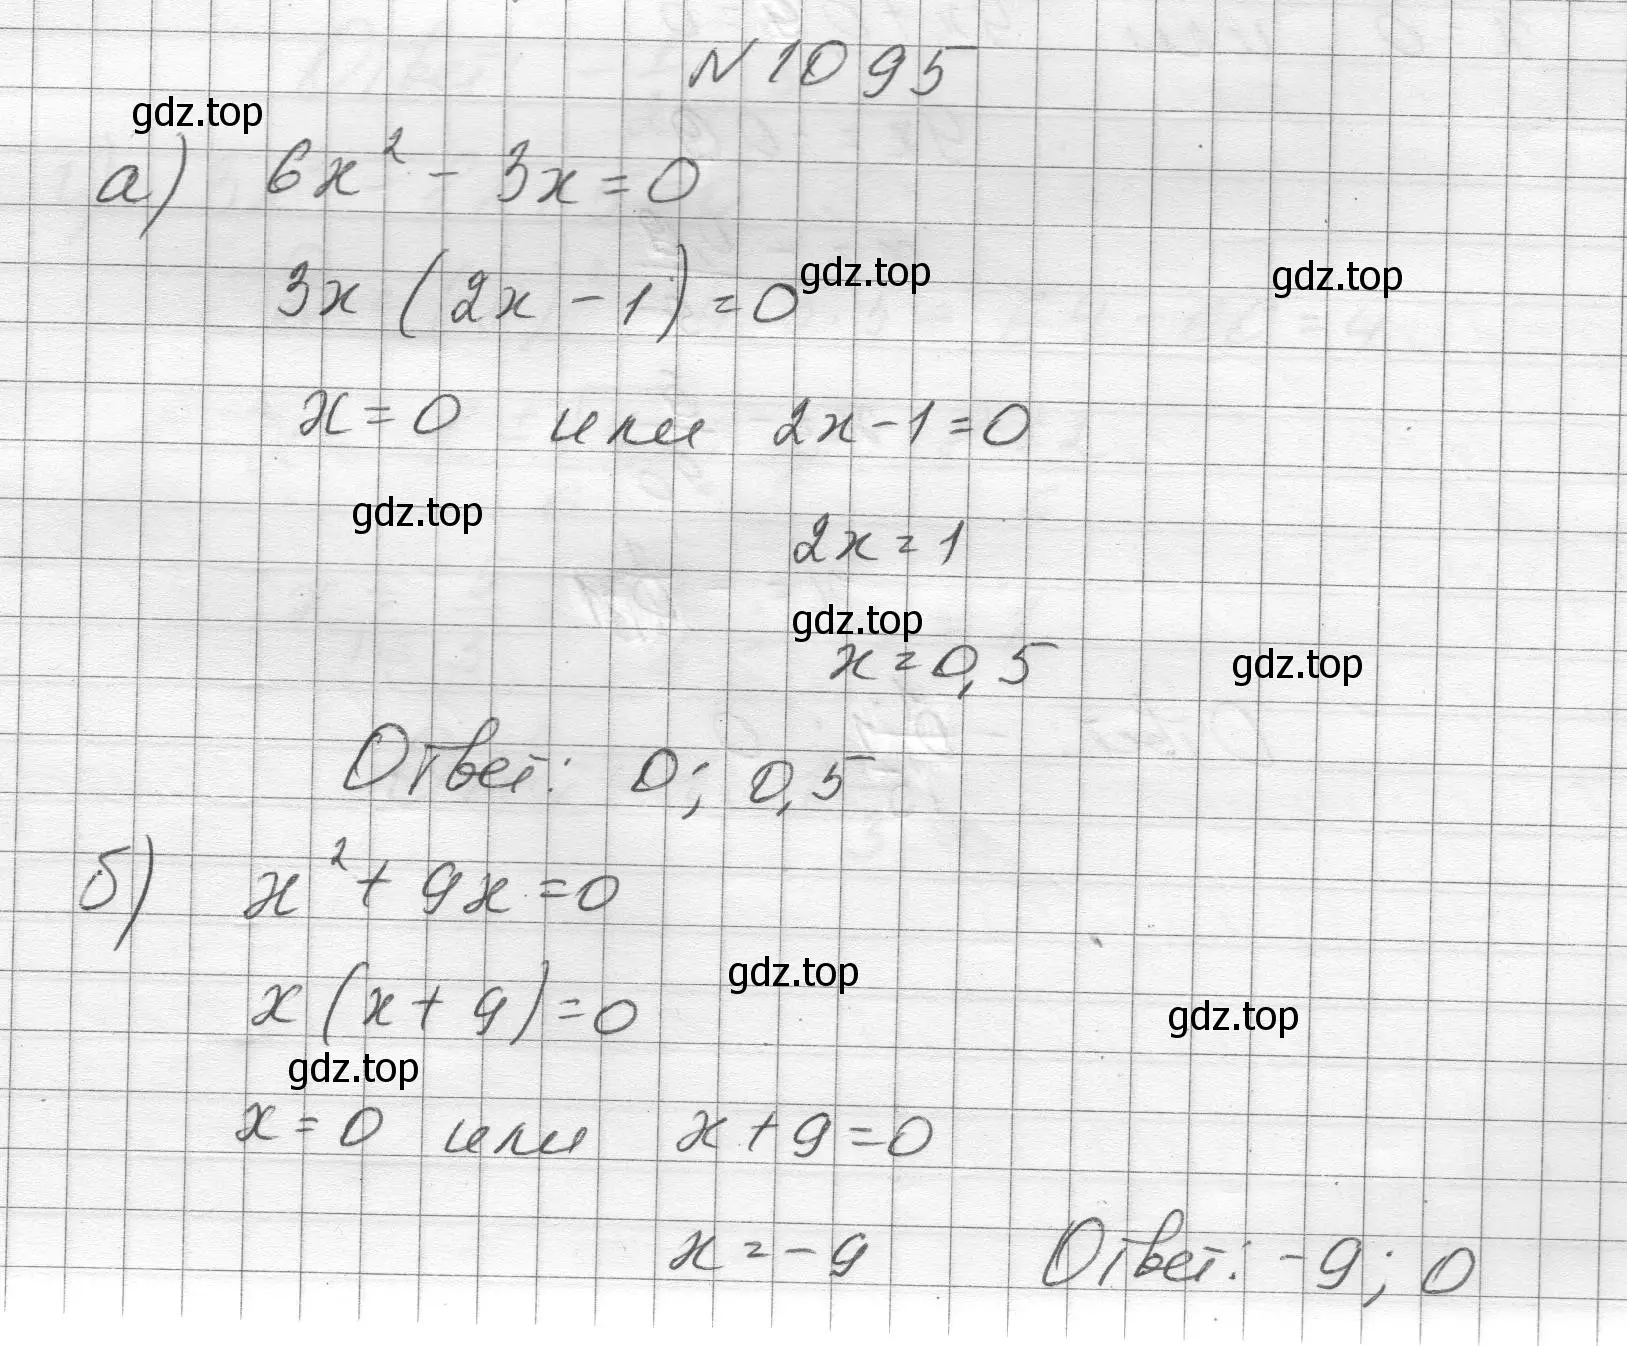 N 1095
gdz.top
а) 6x² - 3x = 0
3x (2x - 1) = 0
gdz.top
gdz.top
x = 0 или 2x - 1 = 0
gdz.top
2x = 1
gdz.top
x = 0,5
gdz.top
Ответ: 0; 0,5
б) x² + 9x = 0
gdz.top
x (x + 9) = 0
gdz.top
gdz.top
x = 0 или x + 9 = 0
x = -9 Ответ: -9; 0